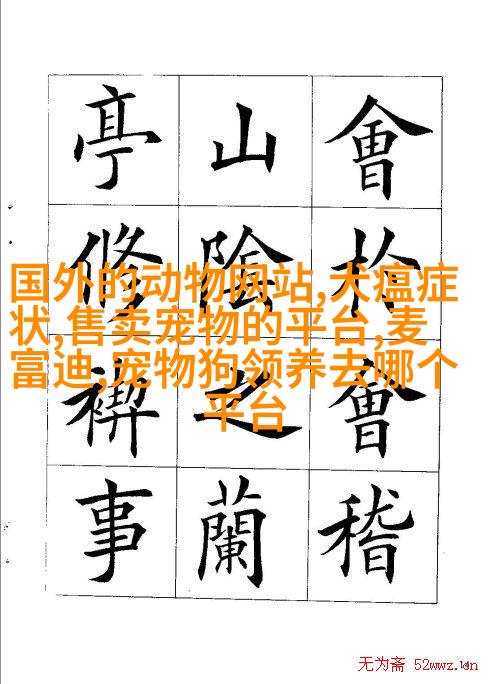 會扵會稽
山陰之蘭
亭修禊事
国外的动物网站,犬瘟症
状,售卖宠物的平台,麦
富迪,宠物狗领养去哪个
平台
无为斋 52wwz.cn